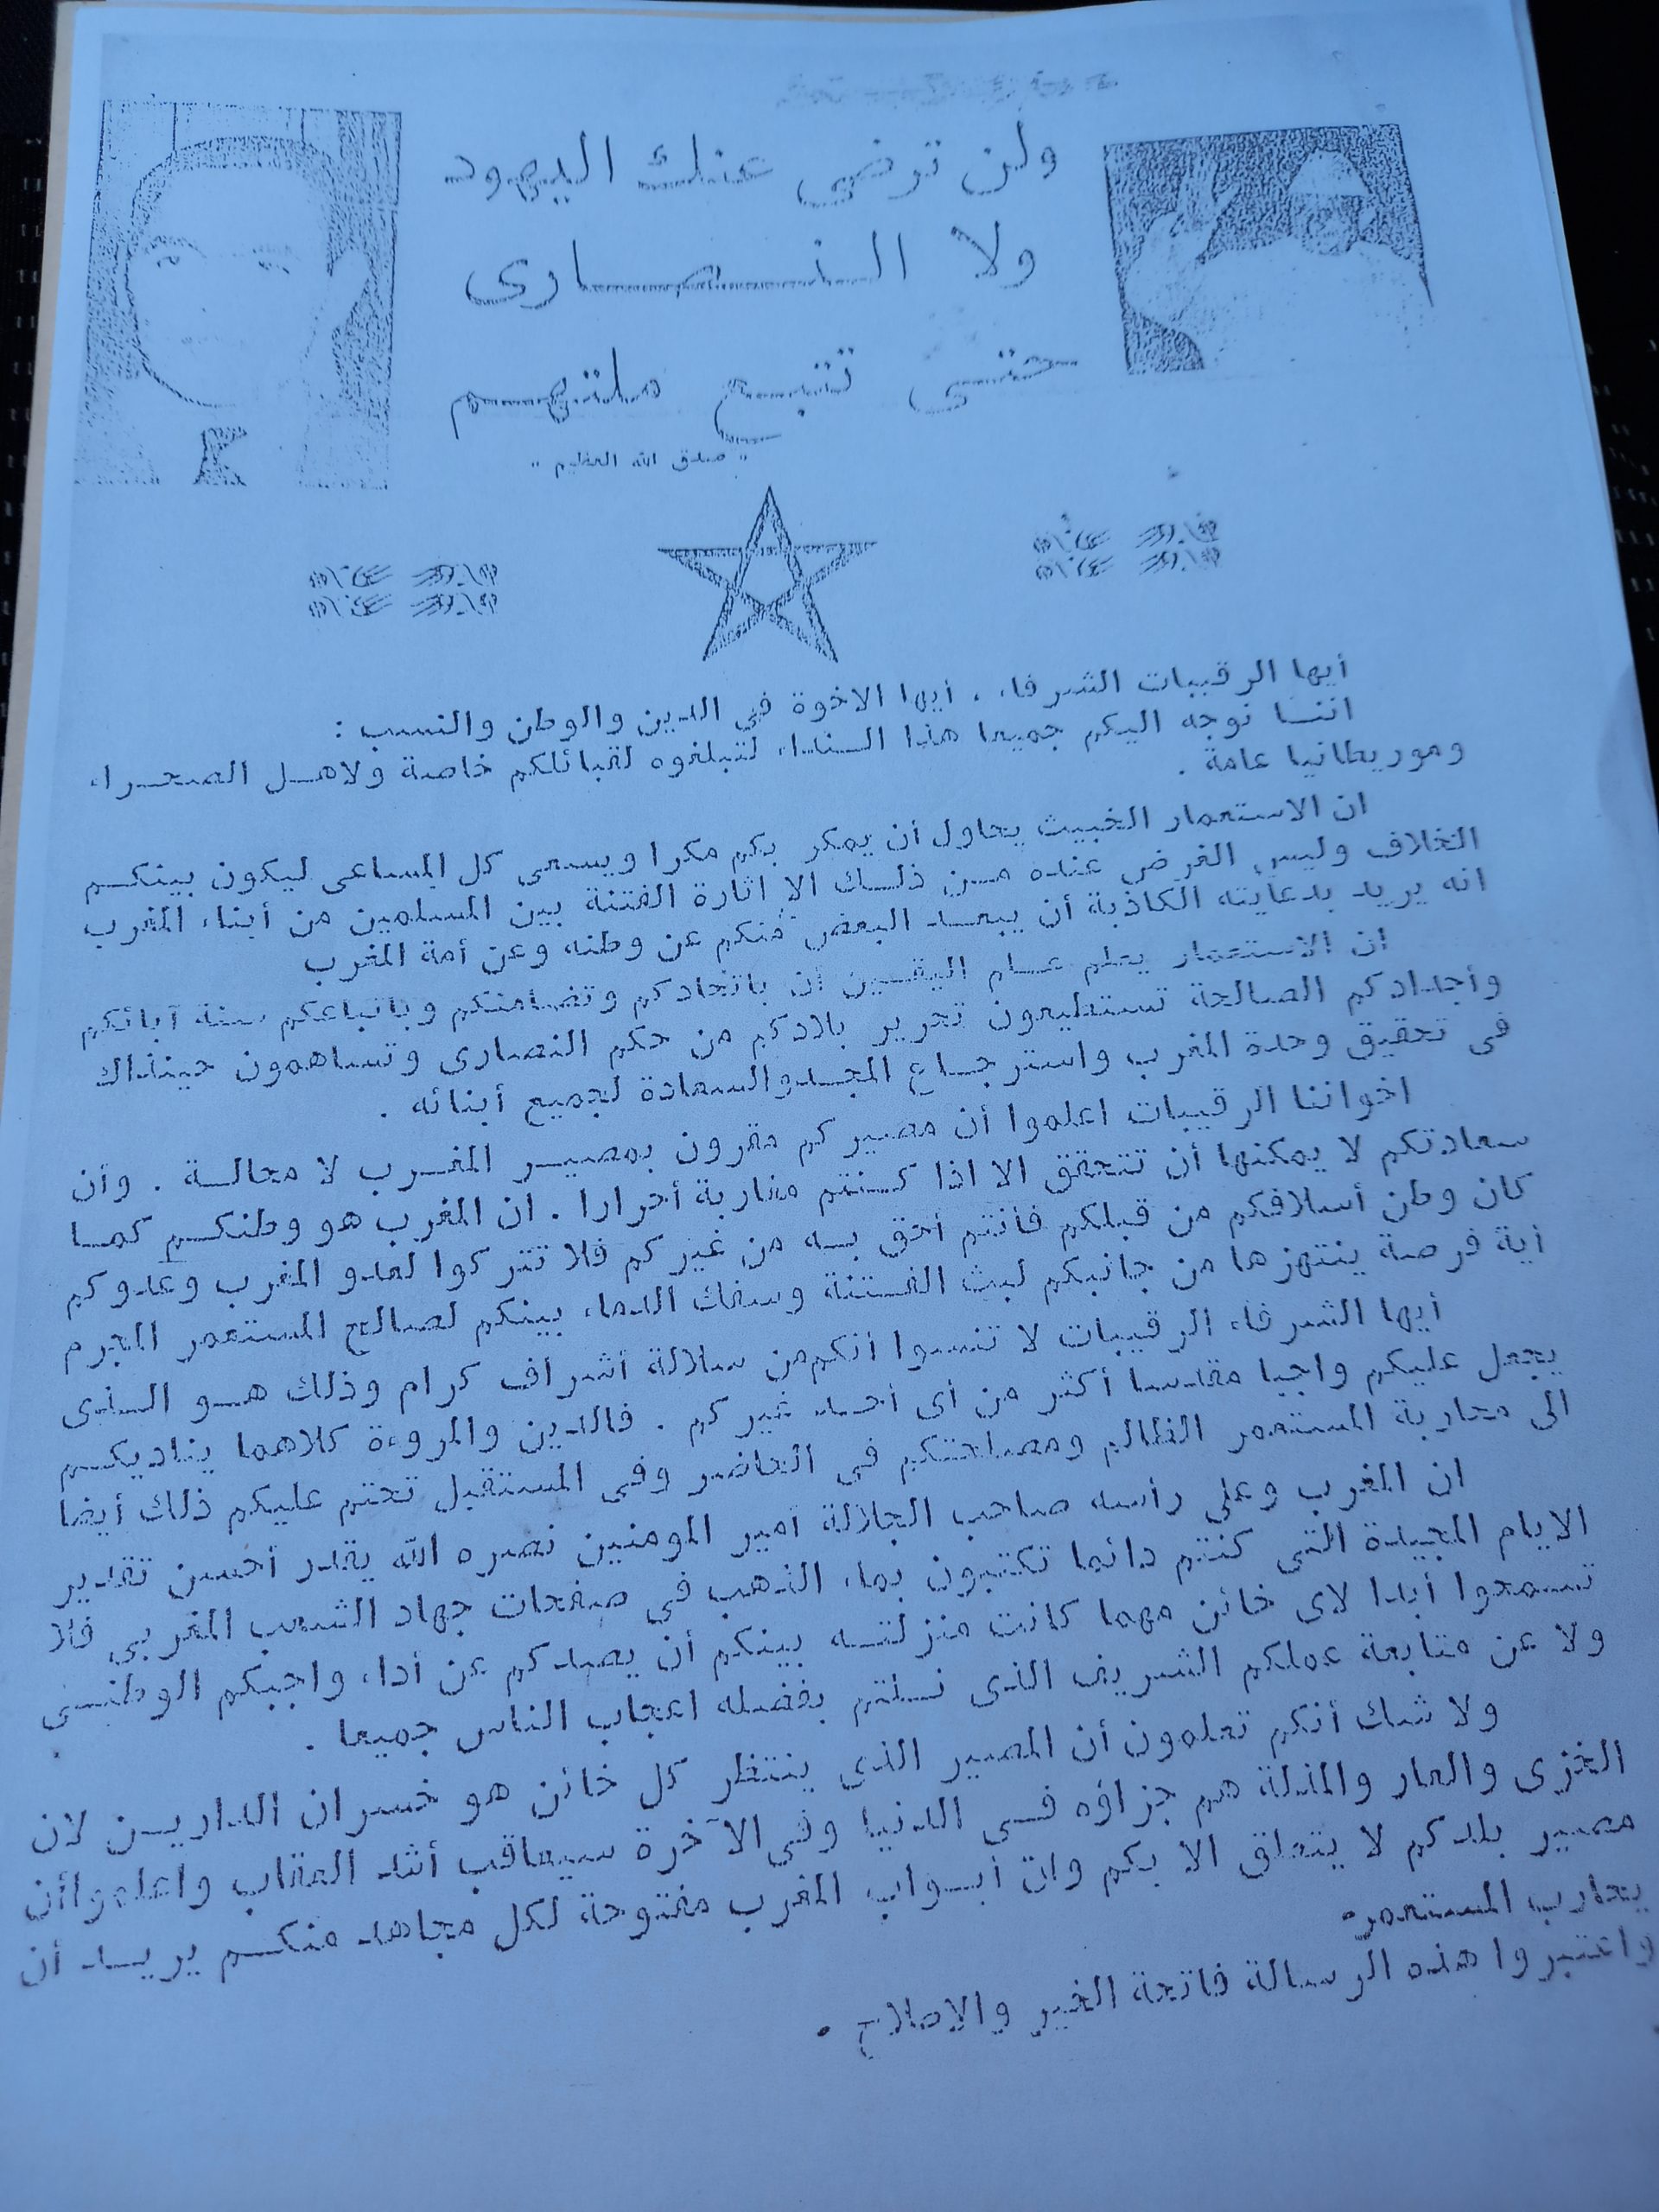 ولن ترضى عنك اليهود
ولا النصارى
حتى تتبع ملتهم
" صدق الله العظيم "
أيها الرقيبات الشرفاء ، أيها الاخوة في الدين والوطن والنسب :
اننا نوجه اليكم جميعا هذا النداء لتبلغوه لقبائلكم خاصة ولاهل الصحراء
وموريطانيا عامة .
ان الاستعمار الخبيث يحاول أن يمكر بكم مكرا ويسعى كل المساعى ليكون بينكم
الخلاف وليس الغرض عنده من ذلك الا اثارة الفتنة بين المسلمين من أبناء المغرب
انه يريد بدعايته الكاذبة أن يبعد البعض منكم عن وطنه وعن أمة المغرب
ان الاستعمار يعلم علم اليقين أن باتحادكم وتضامنكم وباتباعكم سنة آبائكم
وأجدادكم الصالحة تستطيعون تحرير بلادكم من حكم النصارى وتساهمون حينذاك
فى تحقيق وحدة المغرب واسترجاع المجد والسعادة لجميع أبنائه .
اخواننا الرقيبات اعلموا أن مصيركم مقرون بمصير المغرب لا محالة . وأن
سعادتكم لا يمكنها أن تتحقق الا اذا كنتم مغاربة أحرارا . ان المغرب هو وطنكم كما
كان وطن أسلافكم من قبلكم فأنتم أحق به من غيركم فلا تتركوا لعدو المغرب وعدوكم
أية فرصة ينتهزها من جانبكم لبث الفتنة وسفك الدماء بينكم لصالح المستعمر المجرم
أيها الشرفاء الرقيبات لا تنسوا أنكم من سلالة أشراف كرام وذلك هو الذى
يجعل عليكم واجبا مقدسا أكثر من أى أحد غيركم . فالدين والمروءة كلاهما يناديكم
الى محاربة المستعمر الظالم ومصلحتكم في الحاضر وفى المستقبل تحتم عليكم ذلك أيضا
ان المغرب وعلى رأسه صاحب الجلالة أمير المومنين نصره الله يقدر أحسن تقدير
الايام المجيدة التى كنتم دائما تكتبون بماء الذهب في صفحات جهاد الشعب المغربي فلا
تسمحوا أبدا لاى خائن مهما كانت منزلته بينكم أن يصدكم عن أداء واجبكم الوطنى
ولا عن متابعة عملكم الشريف الذى نلتم بفضله اعجاب الناس جميعا .
ولا شك أنكم تعلمون أن المصير الذى ينتظر كل خائن هو خسران الدارين لان
الخزى والعار والمذلة هم جزاؤه في الدنيا وفى الآخرة سيعاقب أشد العقاب واعلموا أن
مصير بلدكم لا يتعلق الا بكم وان أبواب المغرب مفتوحة لكل مجاهد منكم يريد أن
يحارب المستعمر .
واعتبروا هذه الرسالة فاتحة الخير والاصلاح .